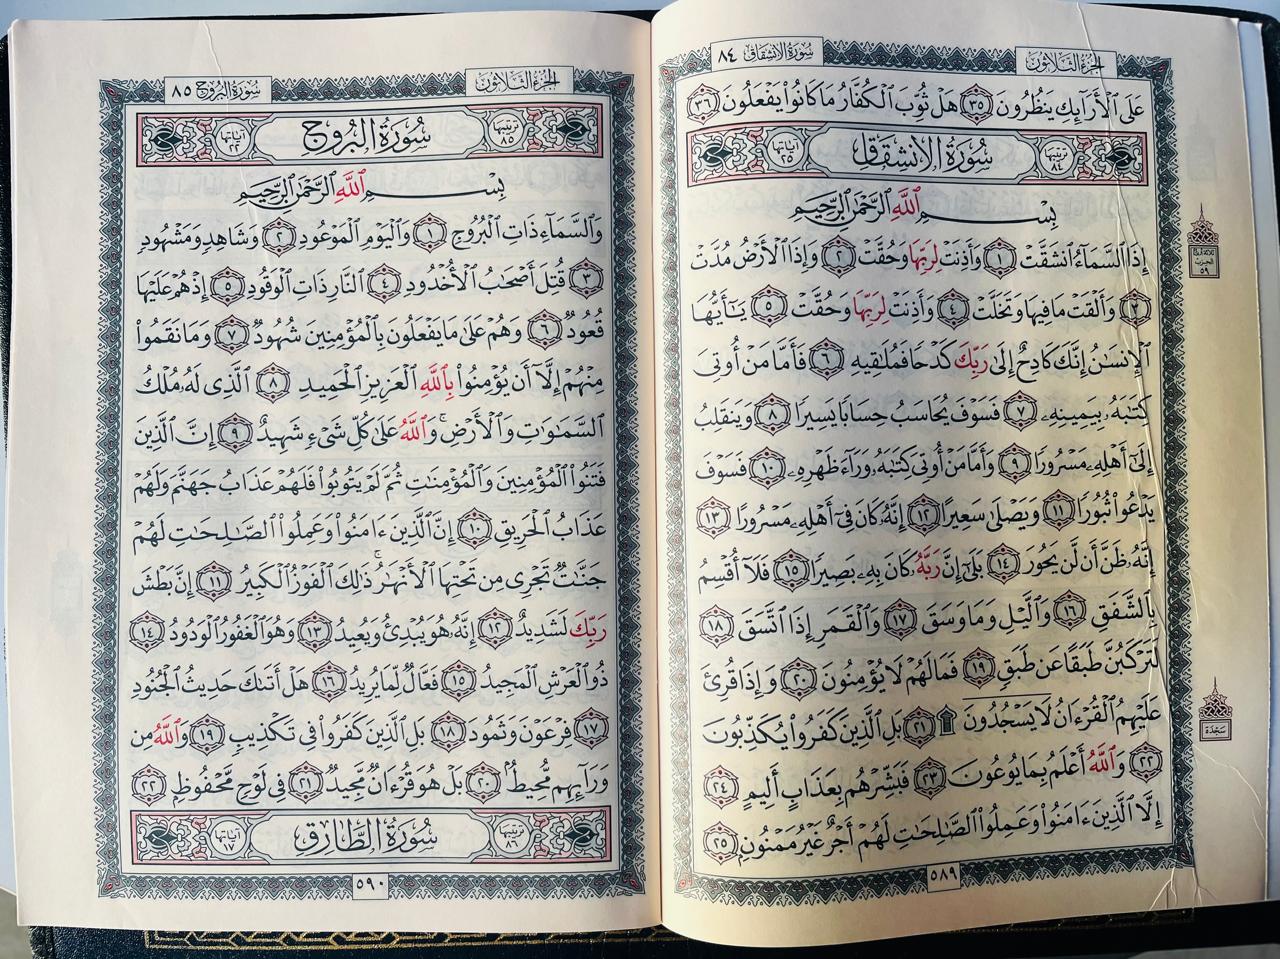 سُورَةُ الِانشِقَاقِ ٨٤
الجُزْءُ الثَّلَاثُونَ
عَلَى ٱلۡأَرَآئِكِ يَنظُرُونَ ٣٥ هَلۡ ثُوِّبَ ٱلۡكُفَّارُ مَا كَانُواْ يَفۡعَلُونَ ٣٦
ترتيبها ٨٤ سُورَةُ الانشِقَاقِ آياتها ٢٥
بِسۡمِ ٱللَّهِ ٱلرَّحۡمَٰنِ ٱلرَّحِيمِ
إِذَا ٱلسَّمَآءُ ٱنشَقَّتۡ ١ وَأَذِنَتۡ لِرَبِّهَا وَحُقَّتۡ ٢ وَإِذَا ٱلۡأَرۡضُ مُدَّتۡ
٣ وَأَلۡقَتۡ مَا فِيهَا وَتَخَلَّتۡ ٤ وَأَذِنَتۡ لِرَبِّهَا وَحُقَّتۡ ٥ يَٰٓأَيُّهَا
ٱلۡإِنسَٰنُ إِنَّكَ كَادِحٌ إِلَىٰ رَبِّكَ كَدۡحًا فَمُلَٰقِيهِ ٦ فَأَمَّا مَنۡ أُوتِيَ
كِتَٰبَهُۥ بِيَمِينِهِۦ ٧ فَسَوۡفَ يُحَاسَبُ حِسَابًا يَسِيرًا ٨ وَيَنقَلِبُ
إِلَىٰٓ أَهۡلِهِۦ مَسۡرُورًا ٩ وَأَمَّا مَنۡ أُوتِيَ كِتَٰبَهُۥ وَرَآءَ ظَهۡرِهِۦ ١٠ فَسَوۡفَ
يَدۡعُواْ ثُبُورًا ١١ وَيَصۡلَىٰ سَعِيرًا ١٢ إِنَّهُۥ كَانَ فِيٓ أَهۡلِهِۦ مَسۡرُورًا ١٣
إِنَّهُۥ ظَنَّ أَن لَّن يَحُورَ ١٤ بَلَىٰٓ إِنَّ رَبَّهُۥ كَانَ بِهِۦ بَصِيرًا ١٥ فَلَآ أُقۡسِمُ
بِٱلشَّفَقِ ١٦ وَٱلَّيۡلِ وَمَا وَسَقَ ١٧ وَٱلۡقَمَرِ إِذَا ٱتَّسَقَ ١٨
لَتَرۡكَبُنَّ طَبَقًا عَن طَبَقٖ ١٩ فَمَا لَهُمۡ لَا يُؤۡمِنُونَ ٢٠ وَإِذَا قُرِئَ
عَلَيۡهِمُ ٱلۡقُرۡءَانُ لَا يَسۡجُدُونَۤ ۩ ٢١ بَلِ ٱلَّذِينَ كَفَرُواْ يُكَذِّبُونَ
٢٢ وَٱللَّهُ أَعۡلَمُ بِمَا يُوعُونَ ٢٣ فَبَشِّرۡهُم بِعَذَابٍ أَلِيمٍ ٢٤
إِلَّا ٱلَّذِينَ ءَامَنُواْ وَعَمِلُواْ ٱلصَّٰلِحَٰتِ لَهُمۡ أَجۡرٌ غَيۡرُ مَمۡنُونِۭ ٢٥
ثلاثة أرباع
الحزب
٥٩
سجدة
٥٨٩
سُورَةُ البُرُوجِ ٨٥
الجُزْءُ الثَّلَاثُونَ
ترتيبها ٨٥ سُورَةُ البُرُوجِ آياتها ٢٢
بِسۡمِ ٱللَّهِ ٱلرَّحۡمَٰنِ ٱلرَّحِيمِ
وَٱلسَّمَآءِ ذَاتِ ٱلۡبُرُوجِ ١ وَٱلۡيَوۡمِ ٱلۡمَوۡعُودِ ٢ وَشَاهِدٖ وَمَشۡهُودٖ
٣ قُتِلَ أَصۡحَٰبُ ٱلۡأُخۡدُودِ ٤ ٱلنَّارِ ذَاتِ ٱلۡوَقُودِ ٥ إِذۡ هُمۡ عَلَيۡهَا
قُعُودٞ ٦ وَهُمۡ عَلَىٰ مَا يَفۡعَلُونَ بِٱلۡمُؤۡمِنِينَ شُهُودٞ ٧ وَمَا نَقَمُواْ
مِنۡهُمۡ إِلَّآ أَن يُؤۡمِنُواْ بِٱللَّهِ ٱلۡعَزِيزِ ٱلۡحَمِيدِ ٨ ٱلَّذِي لَهُۥ مُلۡكُ
ٱلسَّمَٰوَٰتِ وَٱلۡأَرۡضِۚ وَٱللَّهُ عَلَىٰ كُلِّ شَيۡءٖ شَهِيدٌ ٩ إِنَّ ٱلَّذِينَ
فَتَنُواْ ٱلۡمُؤۡمِنِينَ وَٱلۡمُؤۡمِنَٰتِ ثُمَّ لَمۡ يَتُوبُواْ فَلَهُمۡ عَذَابُ جَهَنَّمَ وَلَهُمۡ
عَذَابُ ٱلۡحَرِيقِ ١٠ إِنَّ ٱلَّذِينَ ءَامَنُواْ وَعَمِلُواْ ٱلصَّٰلِحَٰتِ لَهُمۡ
جَنَّٰتٞ تَجۡرِي مِن تَحۡتِهَا ٱلۡأَنۡهَٰرُۚ ذَٰلِكَ ٱلۡفَوۡزُ ٱلۡكَبِيرُ ١١ إِنَّ بَطۡشَ
رَبِّكَ لَشَدِيدٌ ١٢ إِنَّهُۥ هُوَ يُبۡدِئُ وَيُعِيدُ ١٣ وَهُوَ ٱلۡغَفُورُ ٱلۡوَدُودُ ١٤
ذُو ٱلۡعَرۡشِ ٱلۡمَجِيدُ ١٥ فَعَّالٞ لِّمَا يُرِيدُ ١٦ هَلۡ أَتَىٰكَ حَدِيثُ ٱلۡجُنُودِ
١٧ فِرۡعَوۡنَ وَثَمُودَ ١٨ بَلِ ٱلَّذِينَ كَفَرُواْ فِي تَكۡذِيبٖ ١٩ وَٱللَّهُ مِن
وَرَآئِهِم مُّحِيطُۢ ٢٠ بَلۡ هُوَ قُرۡءَانٞ مَّجِيدٞ ٢١ فِي لَوۡحٖ مَّحۡفُوظِۭ ٢٢
ترتيبها ٨٦ سُورَةُ الطَّارِقِ آياتها ١٧
٥٩٠